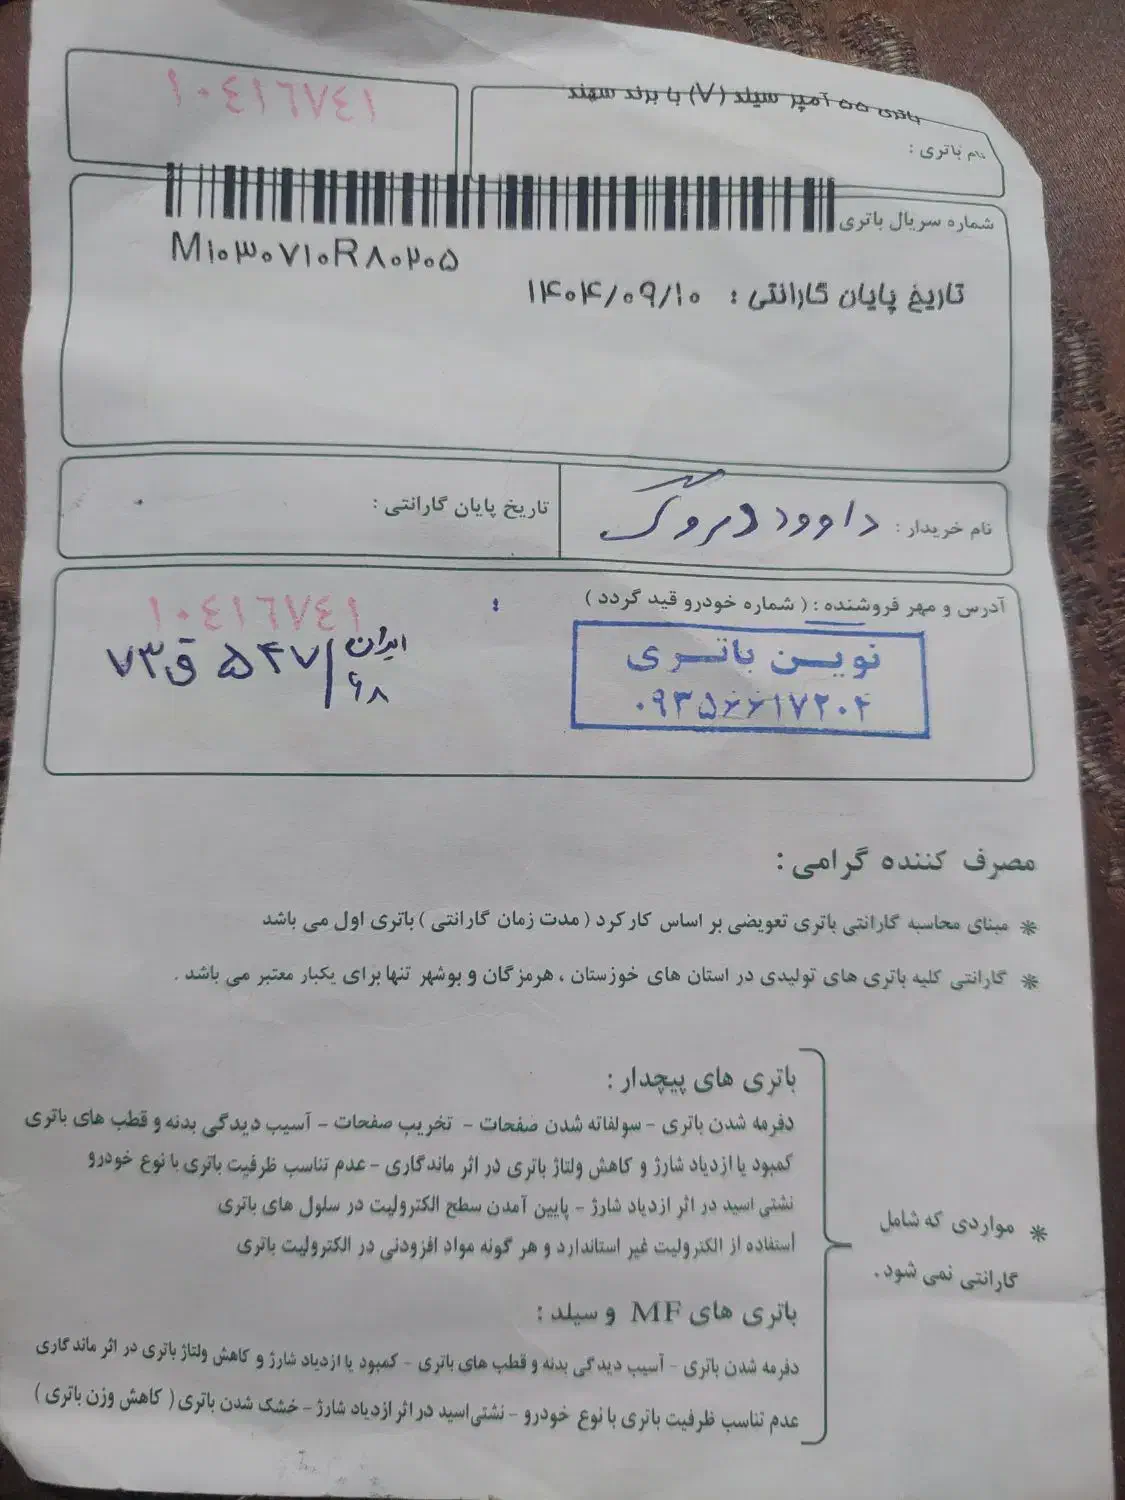 باتری ۵۵ آمپر سیلد (V) با برند سهند
نام باتری :
۱۰۴۱۶۷۴۱
شماره سریال باتری
M۱۰۳۰۷۱۰R۸۰۲۰۵
تاریخ پایان گارانتی : ۱۴۰۴/۰۹/۱۰
نام خریدار : داوود
تاریخ پایان گارانتی :
آدرس و مهر فروشنده : ( شماره خودرو قید گردد ) :
۱۰۴۱۶۷۴۱
نوین باتری
۰۹۳۵۶۶۱۷۲۰۴
ایران ۶۸ / ۵۴۷ ق ۷۳
مصرف کننده گرامی :
* مبنای محاسبه گارانتی باتری تعویضی بر اساس کارکرد ( مدت زمان گارانتی ) باتری اول می باشد
* گارانتی کلیه باتری های تولیدی در استان های خوزستان ، هرمزگان و بوشهر تنها برای یکبار معتبر می باشد .
* مواردی که شامل
گارانتی نمی شود .
باتری های پیچدار :
دفرمه شدن باتری - سولفاته شدن صفحات - تخریب صفحات - آسیب دیدگی بدنه و قطب های باتری
کمبود یا ازدیاد شارژ و کاهش ولتاژ باتری در اثر ماندگاری - عدم تناسب ظرفیت باتری با نوع خودرو
نشتی اسید در اثر ازدیاد شارژ - پایین آمدن سطح الکترولیت در سلول های باتری
استفاده از الکترولیت غیر استاندارد و هر گونه مواد افزودنی در الکترولیت باتری
باتری های MF و سیلد :
دفرمه شدن باتری - آسیب دیدگی بدنه و قطب های باتری - کمبود یا ازدیاد شارژ و کاهش ولتاژ باتری در اثر ماندگاری
عدم تناسب ظرفیت باتری با نوع خودرو - نشتی اسید در اثر ازدیاد شارژ - خشک شدن باتری ( کاهش وزن باتری )